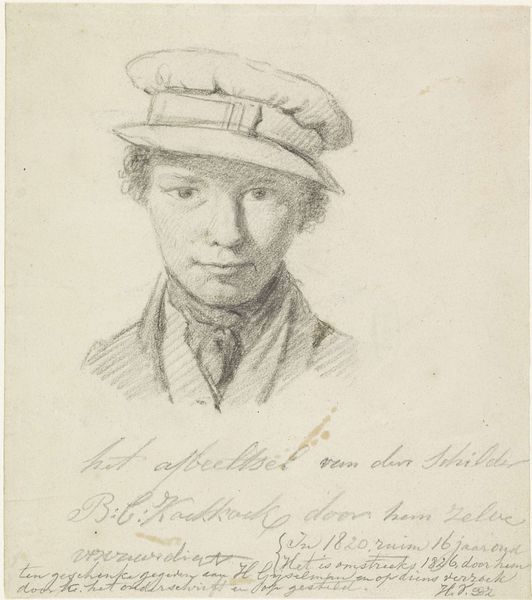 het afbeeltsel van den Schilder
B: C: Koekkoek door hem zelve
vervaardigt
{In 1820 ruim 16 jaar oud
Het is omstreeks 1826, door hem
ten geschenke gegeven aan H. Gijselman en op diens verzoek
door K. het onderschrift er op gesteld.